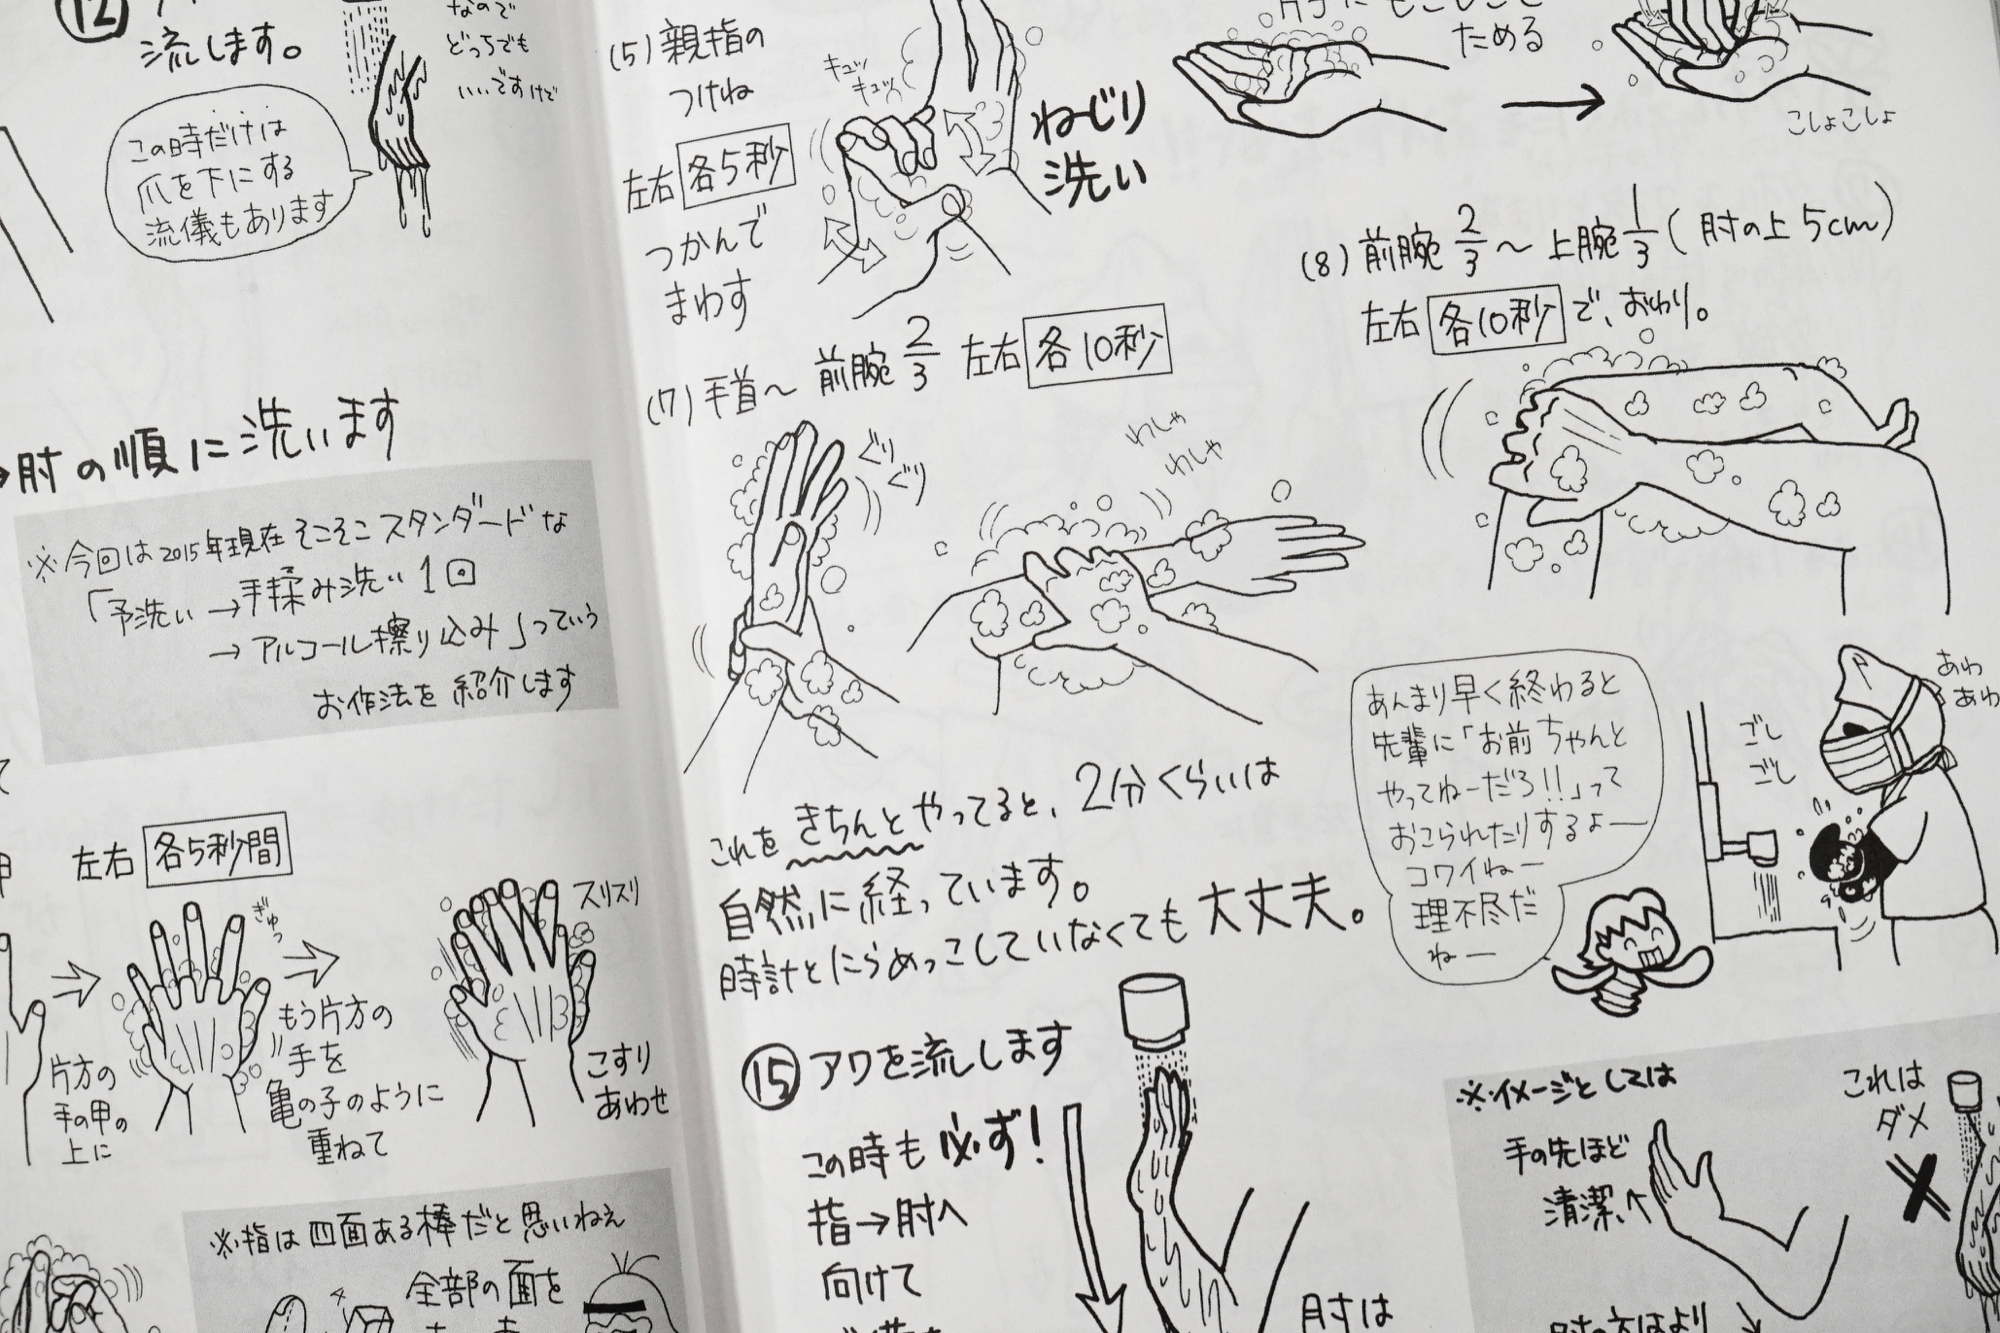 ⑫
流します。
なので
どっちでも
いいですけど
この時だけは
爪を下にする
流儀もあります
→肘の順に洗います
※今回は2015年現在そこそこスタンダードな
「予洗い→手揉み洗い1回
→アルコール擦り込み」っていう
お作法を紹介します
左右 各5秒間
片方の
手の甲の
上に
ぎゅっ
もう片方の
手を
亀の子のように
重ねて
スリスリ
こすり
あわせ
※指は四面ある棒だと思いねぇ
全部の面を
(5)親指の
つけね
左右 各5秒
つかんで
まわす
キュッ
キュッ
ねじり
洗い
ためる
こしょこしょ
(7)手首〜前腕2/3 左右 各10秒
ぐり
ぐり
わしゃ
わしゃ
(8)前腕2/3〜上腕1/3(肘の上5cm)
左右 各10秒 で、おわり。
これをきちんとやってると、2分くらいは
自然に経っています。
時計とにらめっこしていなくても大丈夫。
あんまり早く終わると
先輩に「お前ちゃんと
やってねーだろ!!」って
おこられたりするよー
コワイねー
理不尽だ
ねー
ごし
ごし
あわ
あわ
⑮アワを流します
この時も必ず!
指→肘へ
向けて
肘は
※イメージとしては
手の先ほど
清潔
これは
ダメ
肘の方はより